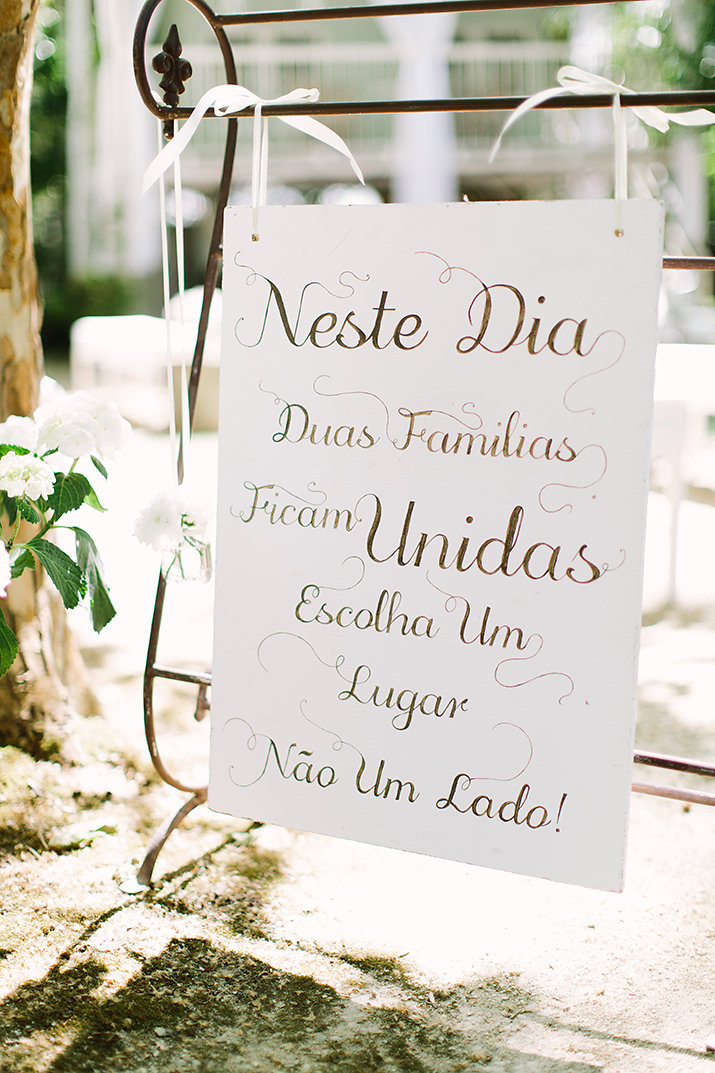 Neste Dia
Duas Familias
Ficam Unidas
Escolha Um
Lugar
Não Um Lado!